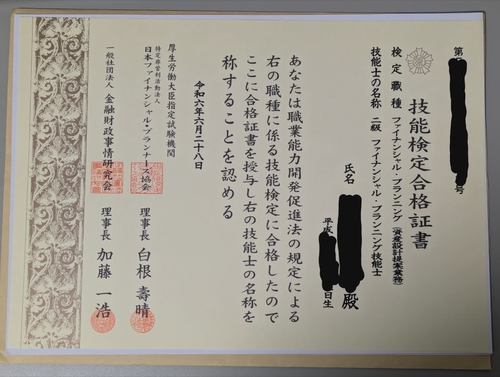 第 号
技能検定合格証書
検定職種 ファイナンシャル・プランニング(資産設計提案業務)
技能士の名称 二級 ファイナンシャル・プランニング技能士
氏名 殿
平成 日生
あなたは職業能力開発促進法の規定による
右の職種に係る技能検定に合格したので
ここに合格証書を授与し右の技能士の名称を
称することを認める
令和六年六月二十八日
厚生労働大臣指定試験機関
特定非営利活動法人
日本ファイナンシャル・プランナーズ協会 理事長 白根壽晴
一般社団法人 金融財政事情研究会 理事長 加藤一浩